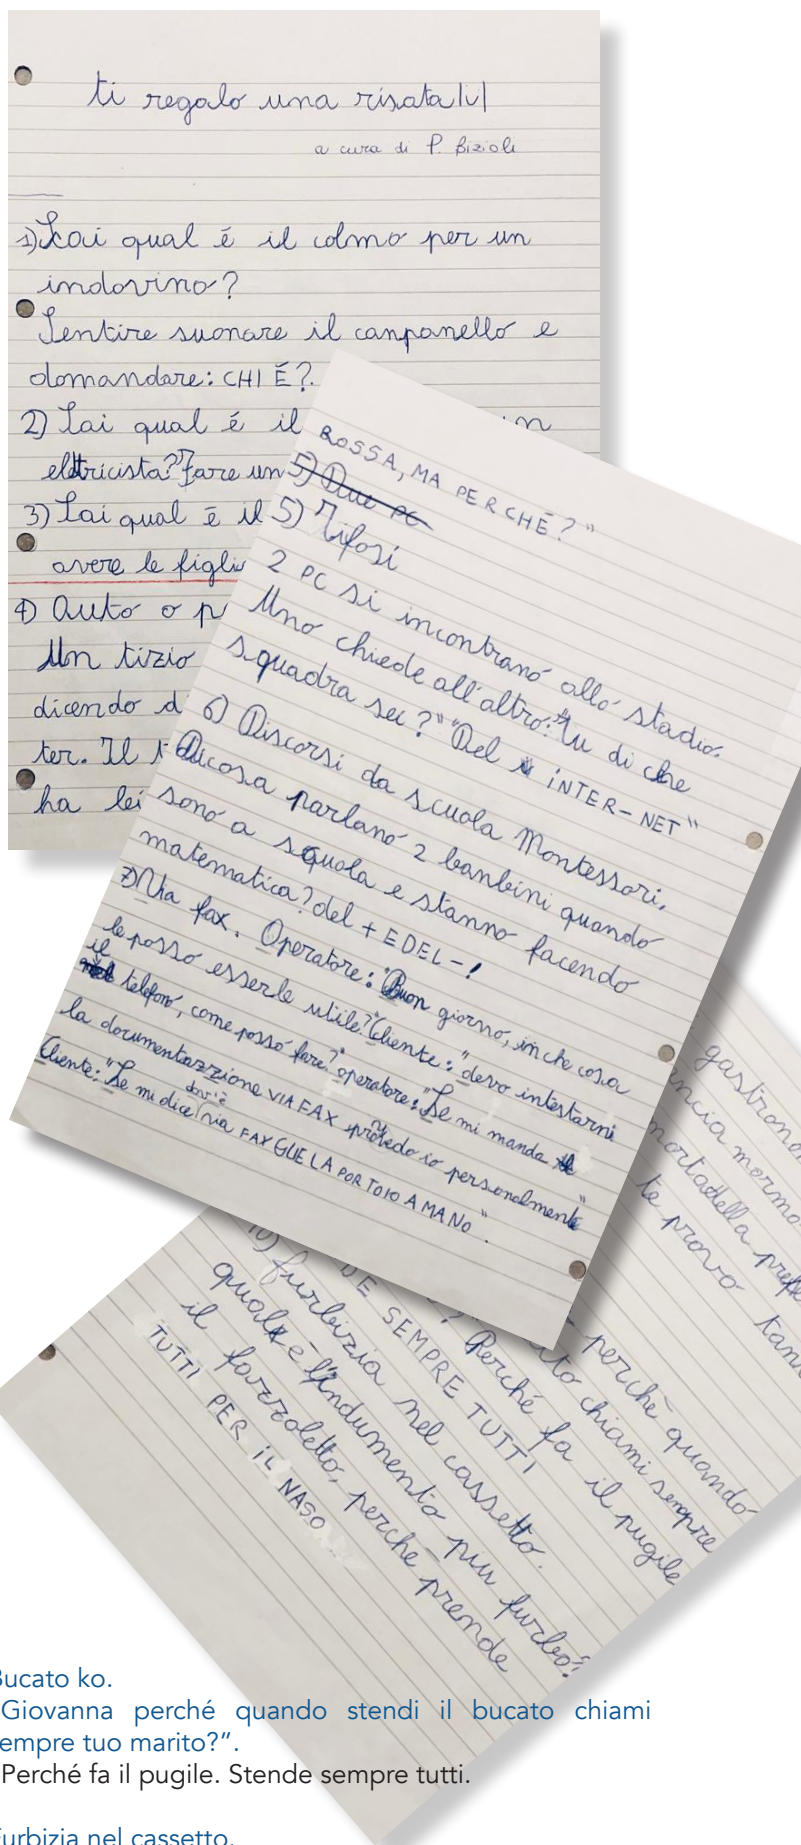 ti regalo una risata |v|
a cura di P. Bizioli
1) Sai qual é il colmo per un
indovino?
Sentire suonare il canpanello e
domandare: CHI É?.
2) Sai qual é il
elettricista? Fare un
3) Sai qual é il
avere le figlie
4) Auto o p
Un tizio
dicendo d
ter. Il t
ha lei
ROSSA, MA PERCHÉ?"
5) Due PC
5) Tifosi
2 PC si incontrano allo stadio.
Uno chiede all'altro: "Tu di che
squadra sei?" "Del iNTER-NET"
6) Discorsi da scuola Montessori.
Dicosa parlano 2 banbini quando
sono a squola e stanno facendo
matematica? del + E DEL - !
7) Via fax. Operatore: "Buon giorno, in che cosa
le posso esserle utile?" Cliente: "devo intestarmi
il telefono, come posso fare?" operatore: "Se mi manda
la documentazzione VIA FAX provvedo io personalmente"
Cliente: "Se mi dice dov'è via FAX GLIE LA PORTO IO A MANO".
gastronom
mortadella prefe
te provo tann
perchè quando
to chiami sempre
! Perché fa il pugile
DE SEMPRE TUTTI
10) furbizia nel cassetto.
qual è l'indumento più furbo?
il fazzoletto, perché prende
TUTTI PER iL NASO
Bucato ko.
Giovanna perché quando stendi il bucato chiami
sempre tuo marito?".
Perché fa il pugile. Stende sempre tutti.
Furbizia nel cassetto.